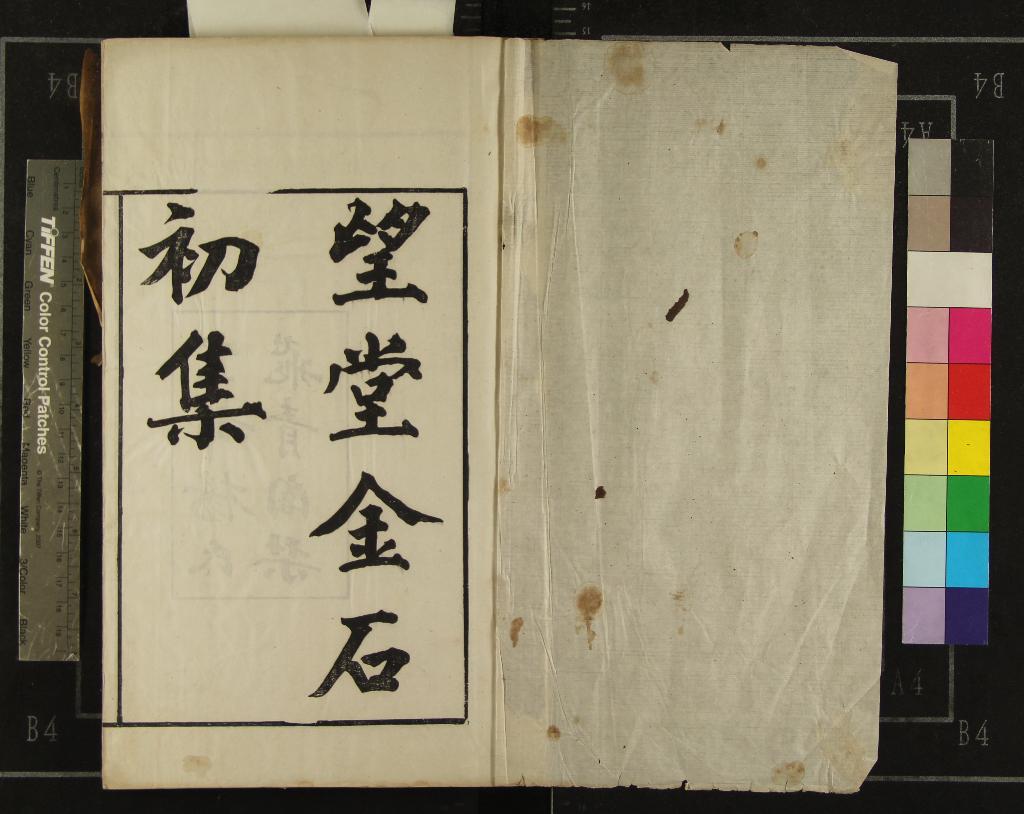 望堂金石
初集
B4
B4
A4
TIFFEN Color Control Patches
Blue
Cyan
Green
Yellow
Red
Magenta
White
3/Color
Black
Centimetres
B4
A4
B4